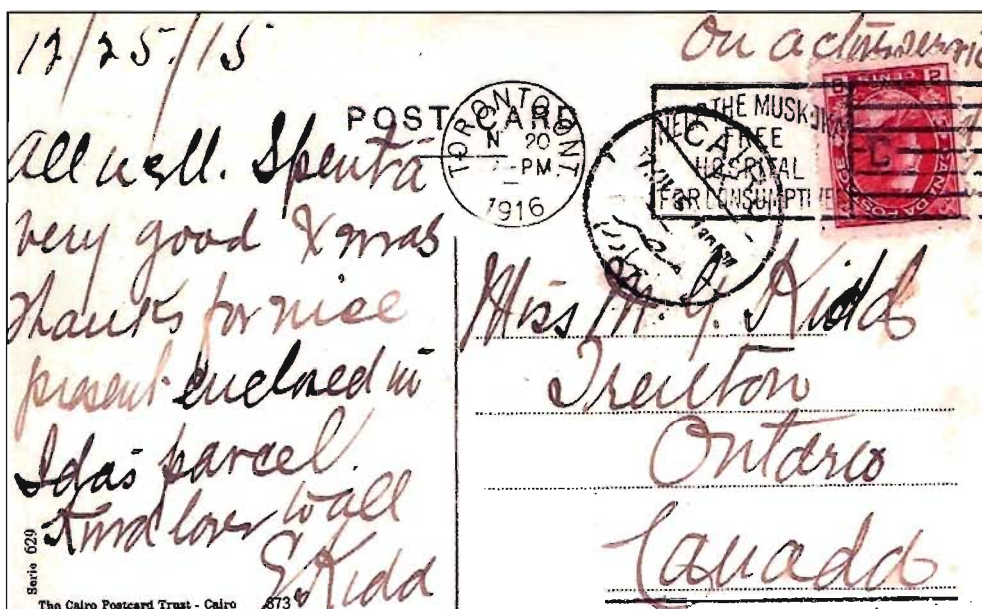 12/25/15
On active servic
POST CARD
TORONTO, ONT.
N 20
PM
1916
HELP THE MUSKOKA
FREE
HOSPITAL
FOR CONSUMPTIVE
C
CANADA POSTAGE
CAI
All well. Spent a
very good Xmas
Thanks for nice
present enclosed in
Idas parcel.
Kind love to all
E. Kidd
Miss M. Y. Kidd
Trenton
Ontario
Canada
Serie 629
The Cairo Postcard Trust - Cairo 873